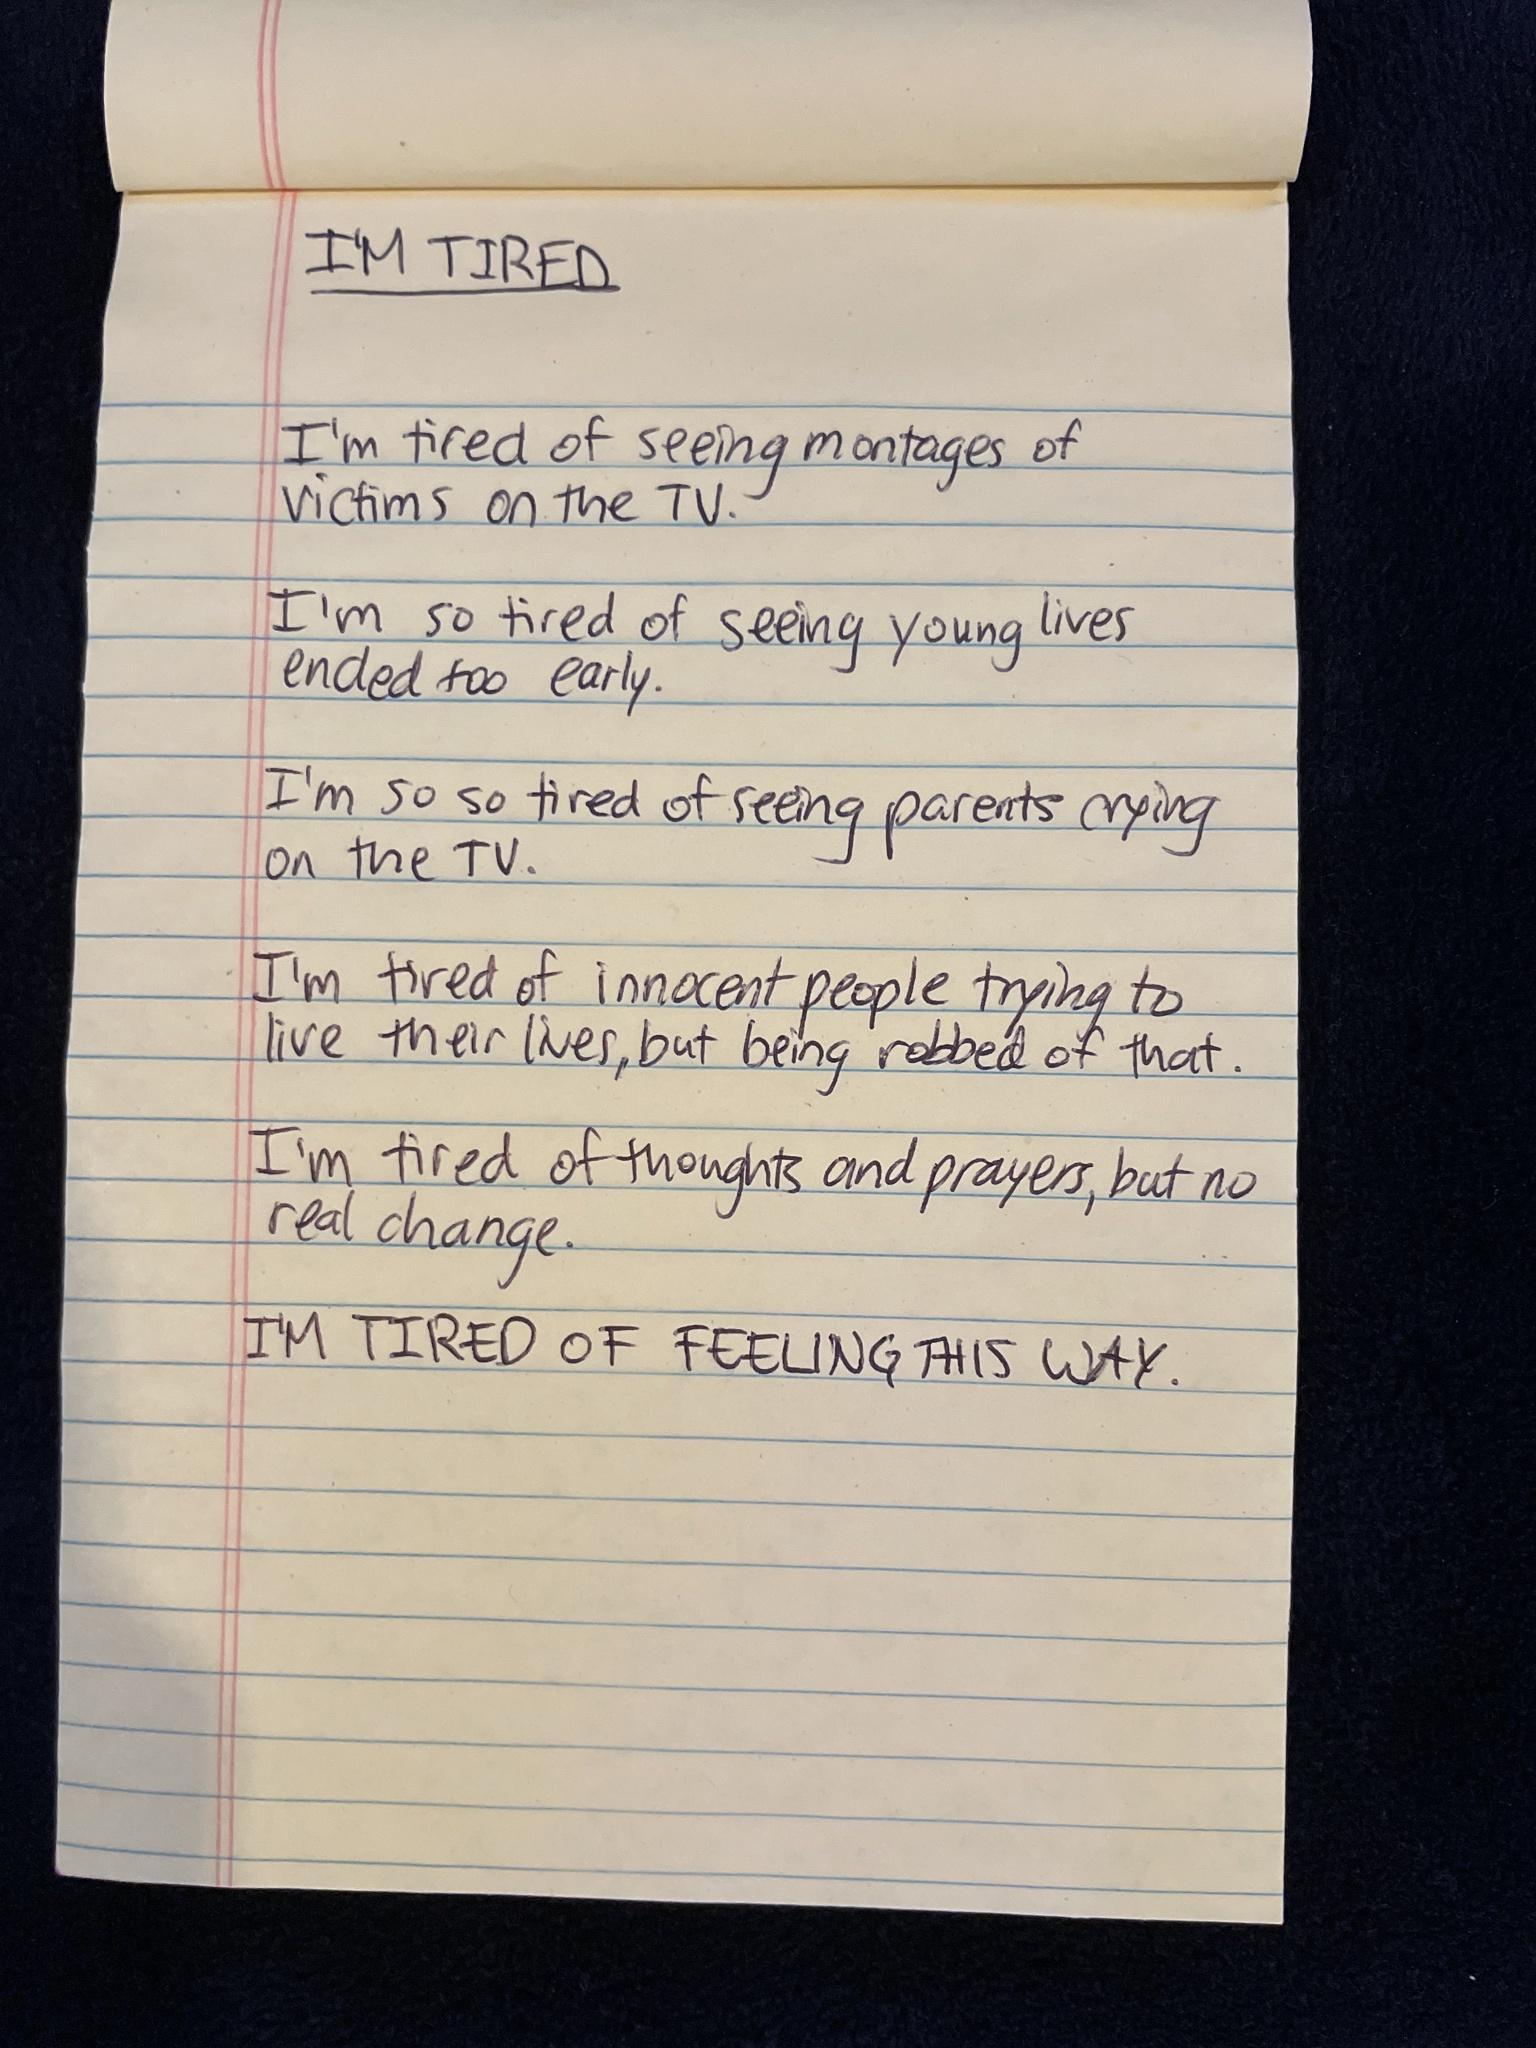 I'M TIRED
I'm tired of seeing montages of
victims on the TV.
I'm so tired of seeing young lives
ended too early.
I'm so so tired of seeing parents crying
on the TV.
I'm tired of innocent people trying to
live their lives, but being robbed of that.
I'm tired of thoughts and prayers, but no
real change.
I'M TIRED OF FEELING THIS WAY.